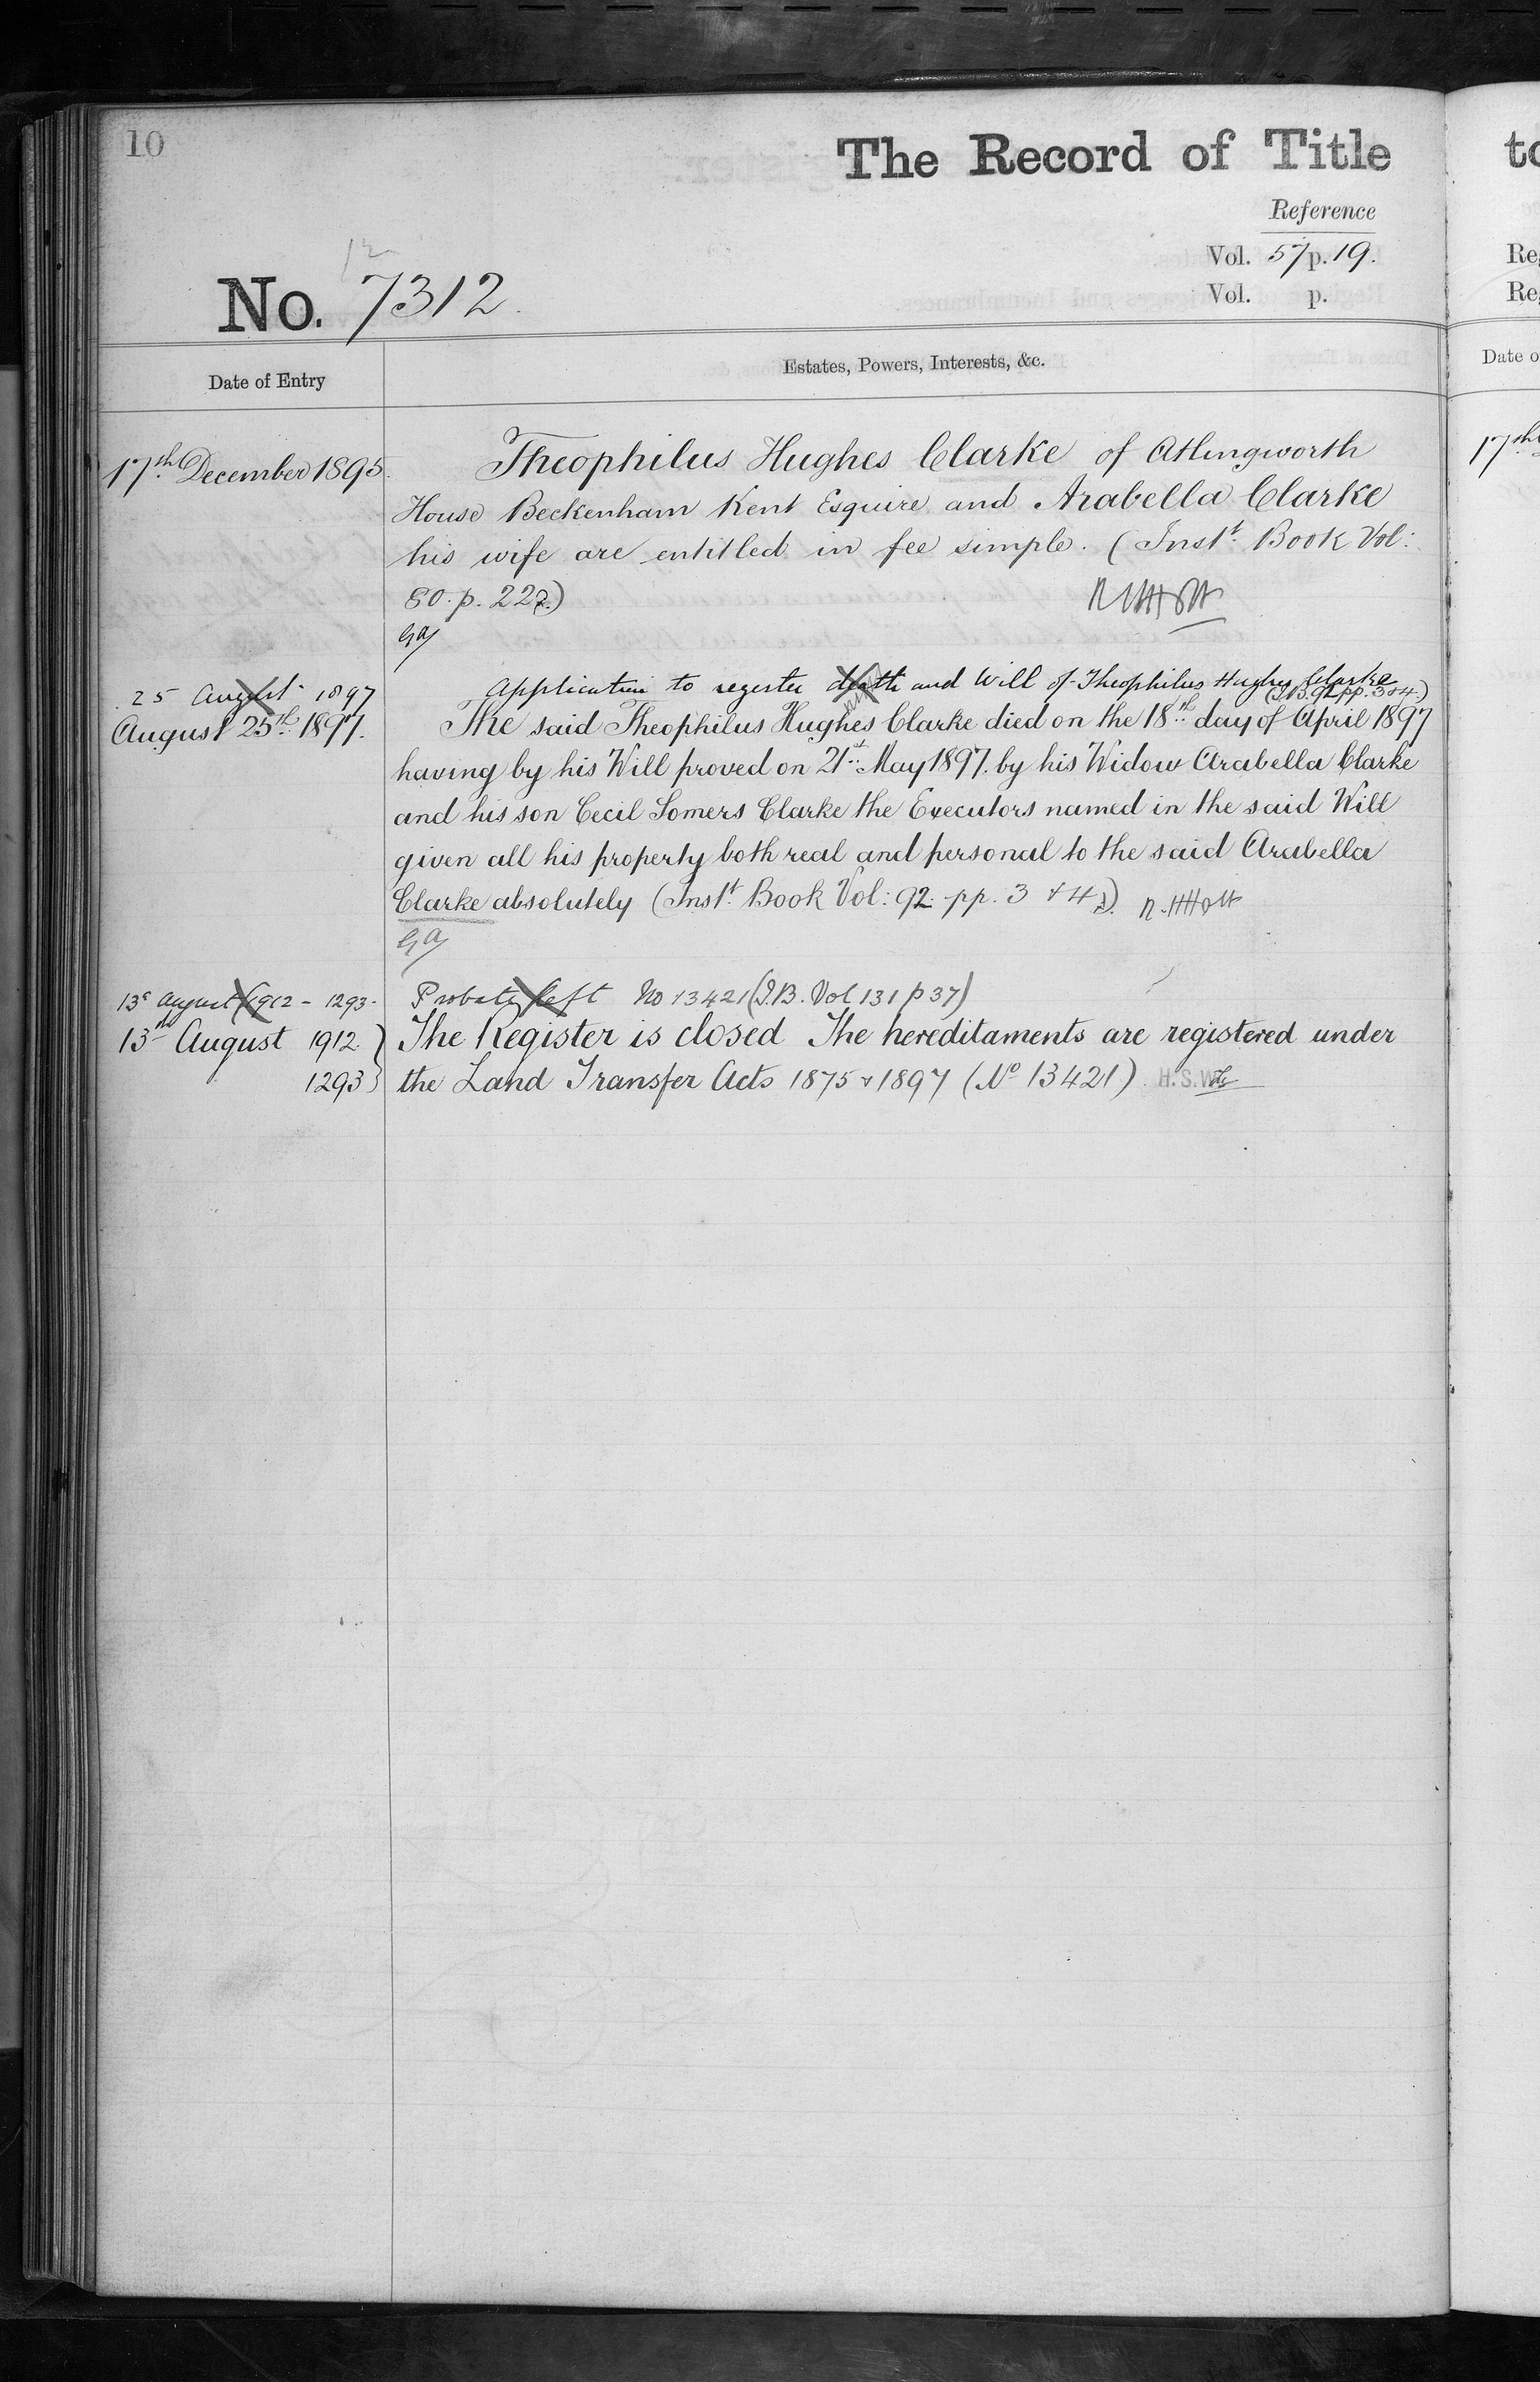 10
The Record of Title
Reference
Vol. 57 p. 19.
Vol. p.
No. 7312.
Date of Entry
Estates, Powers, Interests, &c.
17th December 1895.
Theophilus Hughes Clarke of Atlingworth
House Beckenham Kent Esquire and Arabella Clarke
his wife are entitled in fee simple. (Inst. Book Vol:
80. p. 227.)
25 August 1897
Application to register death and Will of Theophilus Hughes Clarke
(I.B. 92 pp. 3 & 4.)
August 25th 1897.
The said Theophilus Hughes Clarke died on the 18th day of April 1897
having by his Will proved on 21st May 1897. by his Widow Arabella Clarke
and his son Cecil Somers Clarke the Executors named in the said Will
given all his property both real and personal to the said Arabella
Clarke absolutely (Inst. Book Vol: 92. pp. 3 & 4.)
13 August 1912 - 1293.
Probate left No 13421 (I.B. Vol 131 p 37)
13th August 1912. }
The Register is closed The hereditaments are registered under
1293 }
the Land Transfer Acts 1875 & 1897 (No 13421) H.S.W.
to
Re
Re
Date o
17th